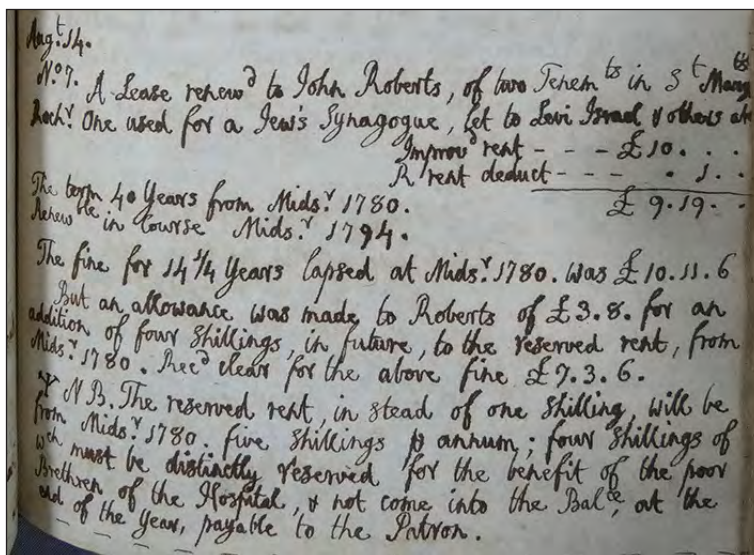 Augt. 14.
No. 7. A Lease renewd to John Roberts, of two Tenemts in St Margts
Rochr. One used for a Jew's Synagogue, let to Levi Israel & others at
Improvd rent - - - £10. . .
R rent deduct - - - . 1. .
£ 9.19. .
The term 40 Years from Midsr. 1780.
Renewble in Course Midsr. 1794.
The fine for 14 1/4 Years lapsed at Midsr. 1780. was £10.11.6
But an allowance was made to Roberts of £3.8. for an
addition of four Shillings, in future, to the reserved rent, from
Midsr. 1780. Recd clear for the above fine £7.3.6.
N B. The reserved rent, in stead of one Shilling, will be
from Midsr. 1780. five Shillings p annum; four Shillings of
wch must be distinctly reserved for the benefit of the poor
Brethren of the Hospital, & not come into the Balce, at the
end of the Year, payable to the Patron.